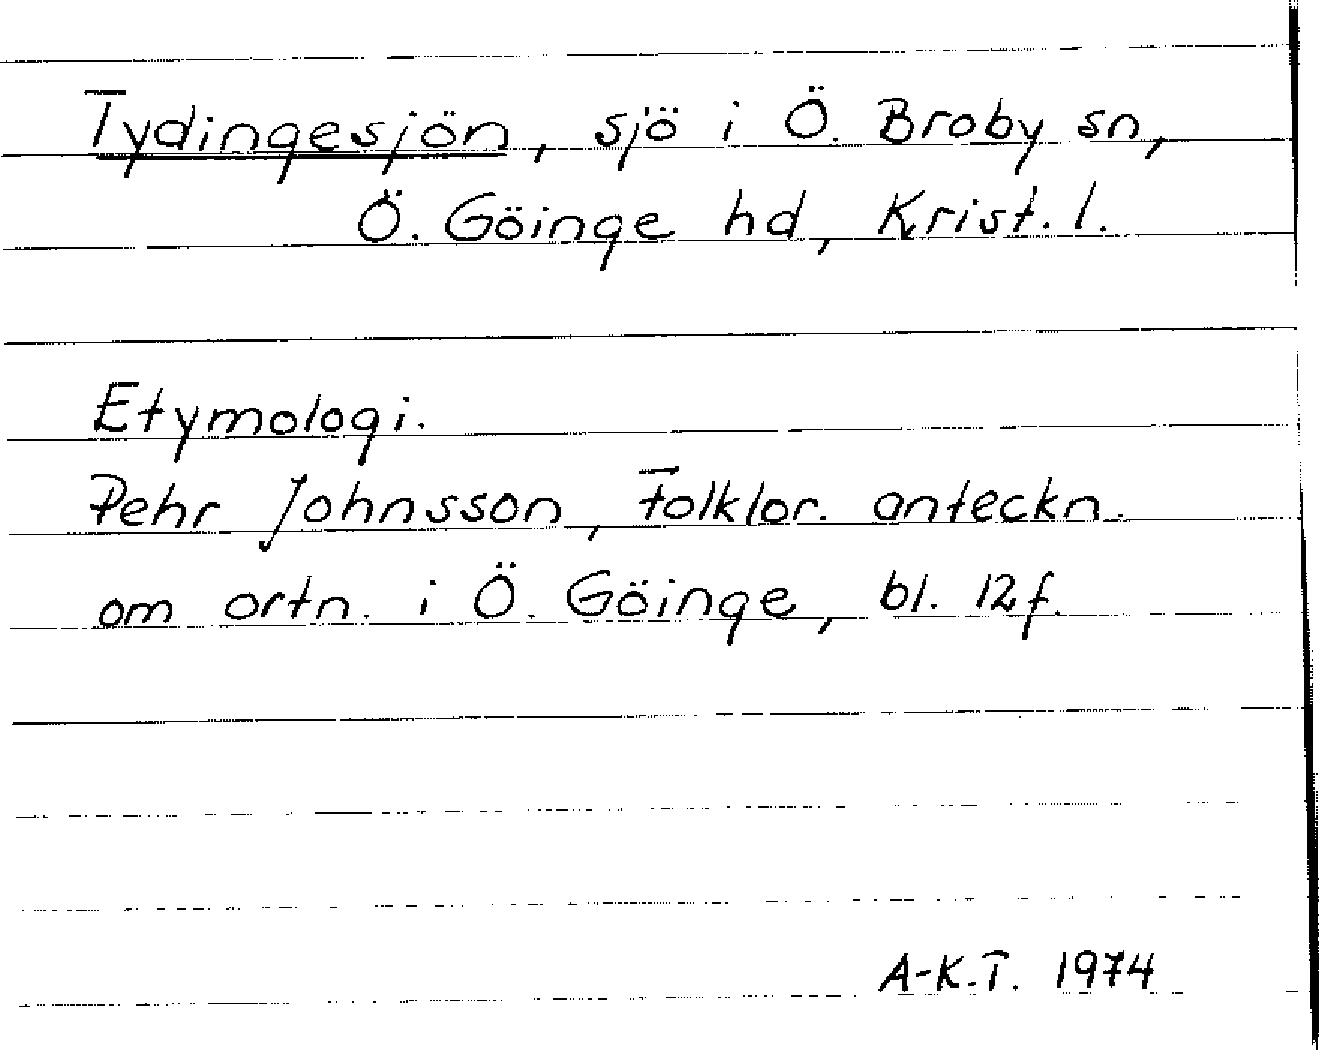 Tydingesjön, sjö i Ö. Broby sn,
Ö. Göinge hd, Krist. l.
Etymologi.
Pehr Johnsson, Folklor. anteckn.
om ortn. i Ö. Göinge, bl. 12 f.
A-K.T. 1974